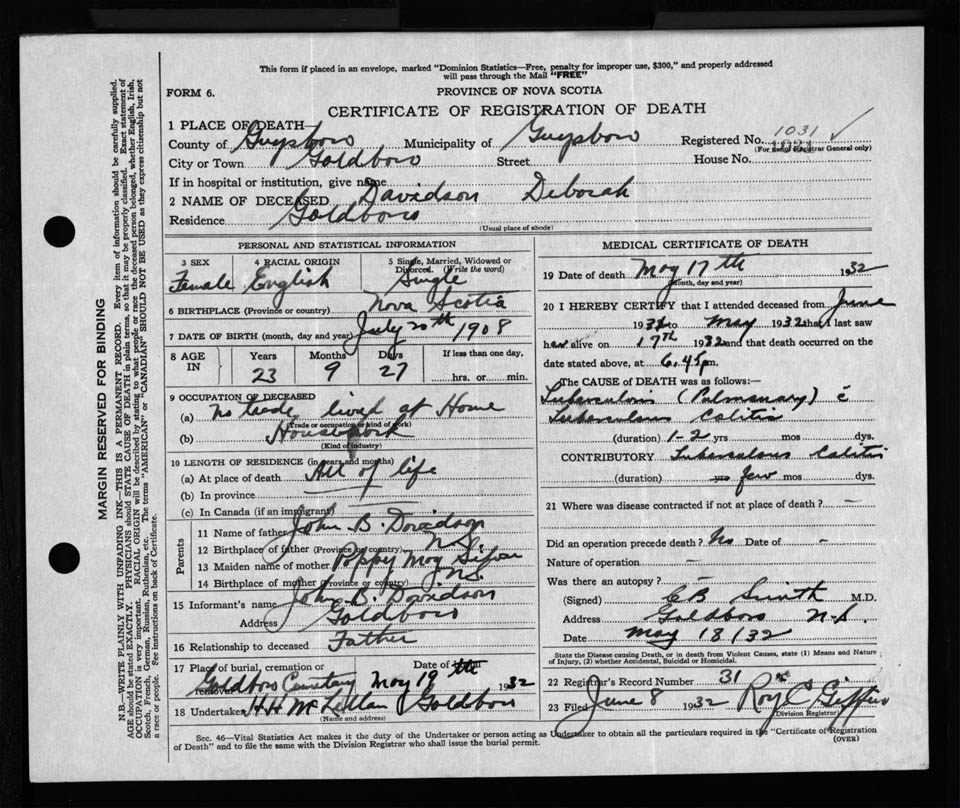 This form if placed in an envelope, marked "Dominion Statistics—Free, penalty for improper use, $300," and properly addressed
will pass through the Mail "FREE"
FORM 6.
PROVINCE OF NOVA SCOTIA
CERTIFICATE OF REGISTRATION OF DEATH
1 PLACE OF DEATH—
County of Guysboro Municipality of Guysboro Registered No. 1031
1031
(For use of Registrar General only)
City or Town Goldboro Street House No.
If in hospital or institution, give name
2 NAME OF DECEASED Davidson Deborah
Residence Goldboro
(Usual place of abode)
PERSONAL AND STATISTICAL INFORMATION
3 SEX 4 RACIAL ORIGIN 5 Single, Married, Widowed or
Divorced. (Write the word)
Female English Single
6 BIRTHPLACE (Province or country) Nova Scotia
7 DATE OF BIRTH (month, day and year) July 20th 1908
8 AGE IN Years Months Days If less than one day,
23 9 27 hrs. or min.
9 OCCUPATION OF DECEASED
(a) No trade, lived at Home
(Trade or occupation or kind of work)
(b) Housework
(Kind of industry)
10 LENGTH OF RESIDENCE (in years and months)
(a) At place of death All of life
(b) In province
(c) In Canada (if an immigrant)
Parents
11 Name of father John B. Davidson
12 Birthplace of father (Province or country) N.S.
13 Maiden name of mother Poppy May
14 Birthplace of mother (Province or country) N.S.
15 Informant's name John B. Davidson
Address Goldboro
16 Relationship to deceased Father
17 Place of burial, cremation or Date of
Goldboro Cemetery May 19th 1932
18 Undertaker H.H. McLellan Goldboro
(Name and address)
MEDICAL CERTIFICATE OF DEATH
19 Date of death May 17th 1932
(Month, day and year)
20 I HEREBY CERTIFY that I attended deceased from June
1931 to May 1932 that I last saw
her alive on 17th 1932 and that death occurred on
date stated above, at 6.45 p.m.
The CAUSE OF DEATH was as follows:—
Tuberculosis (Pulmonary) c̄
Tuberculous Colitis
(duration) 1-2 yrs. mos dys.
CONTRIBUTORY Tuberculous Colitis
(duration) yrs few mos dys.
21 Where was disease contracted if not at place of death? —
Did an operation precede death? No Date of –
Nature of operation —
Was there an autopsy? –
(Signed) CB Smith M.D.
Address Goldboro N.S.
Date May 18/32
State the Disease causing Death, or in death from Violent Causes, state (1) Means and Nature
of Injury, (2) whether Accidental, Suicidal or Homicidal.
22 Registrar's Record Number 31
23 Filed June 8 1932 Roy C Giffin
Division Registrar
Sec. 46—Vital Statistics Act makes it the duty of the Undertaker or person acting as Undertaker to obtain all the particulars required in the "Certificate of Registration
of Death" and to file the same with the Division Registrar who shall issue the burial permit.
(OVER)
MARGIN RESERVED FOR BINDING
N.B.—WRITE PLAINLY WITH UNFADING INK—THIS IS A PERMANENT RECORD. Every item of information should be carefully supplied.
AGE should be stated EXACTLY. PHYSICIANS should STATE CAUSE OF DEATH in plain terms, so that it may be properly classified. Exact statement of
OCCUPATION is very important. RACIAL ORIGIN will be described by stating to what people or race the deceased person belonged, whether English, Irish,
Scotch, French, German, Russian, Ruthenian, etc. The terms "AMERICAN" or "CANADIAN" SHOULD NOT BE USED as they express citizenship but not
a race or people. See instructions on back of Certificate.